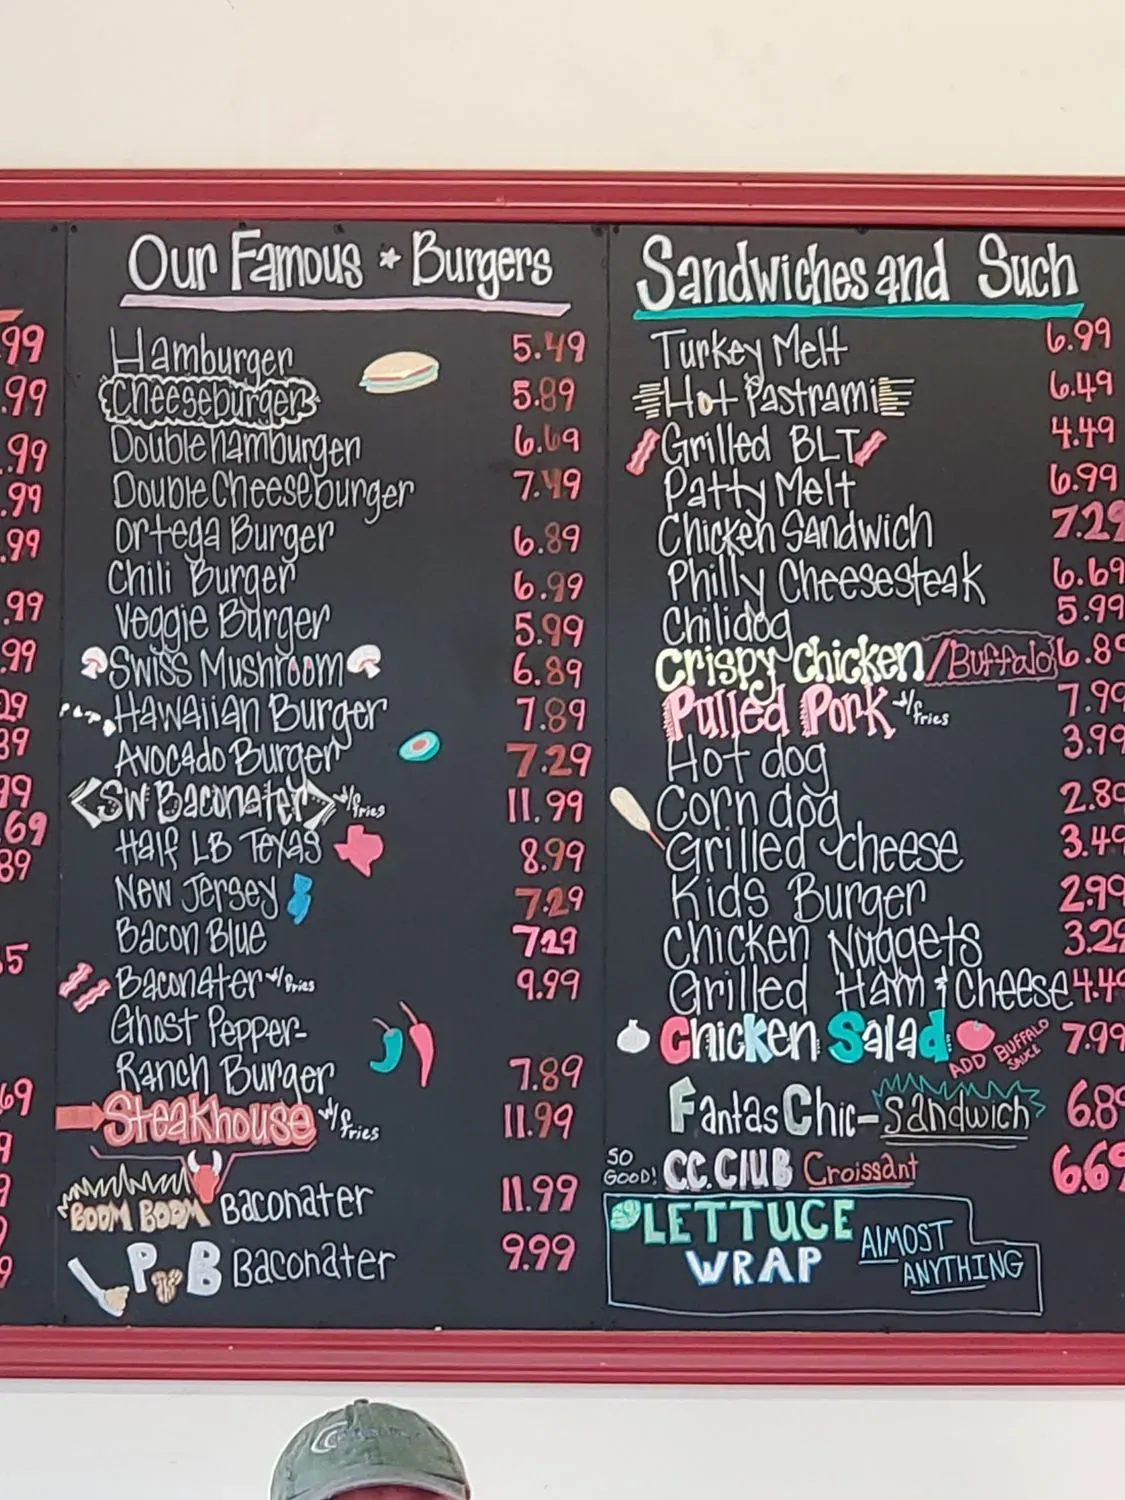 99
.99
.99
.99
.99
.99
.99
29
39
99
.69
89
5
69
9
9
9
Our Famous * Burgers
Hamburger 5.49
Cheeseburger 5.89
Double hamburger 6.69
Double Cheeseburger 7.49
Ortega Burger 6.89
Chili Burger 6.99
Veggie Burger 5.99
Swiss Mushroom 6.89
Hawaiian Burger 7.89
Avocado Burger 7.29
SW Baconater w/fries 11.99
Half LB Texas 8.99
New Jersey 7.29
Bacon Blue 7.29
Baconater w/fries 9.99
Ghost Pepper-
Ranch Burger 7.89
Steakhouse w/fries 11.99
BOOM BOOM Baconater 11.99
P B Baconater 9.99
Sandwiches and Such
Turkey Melt 6.99
Hot Pastrami 6.49
Grilled BLT 4.49
Patty Melt 6.99
Chicken Sandwich 7.29
Philly Cheesesteak 6.69
Chilidog 5.99
Crispy Chicken / Buffalo 6.89
Pulled Pork w/fries 7.99
Hot dog 3.99
Corn dog 2.80
Grilled cheese 3.49
Kids Burger 2.99
Chicken Nuggets 3.29
Grilled Ham & Cheese 4.49
Chicken Salad ADD BUFFALO SAUCE 7.99
Fantas Chic-Sandwich 6.89
SO GOOD! CC.CLUB Croissant 6.69
LETTUCE WRAP
ALMOST ANYTHING